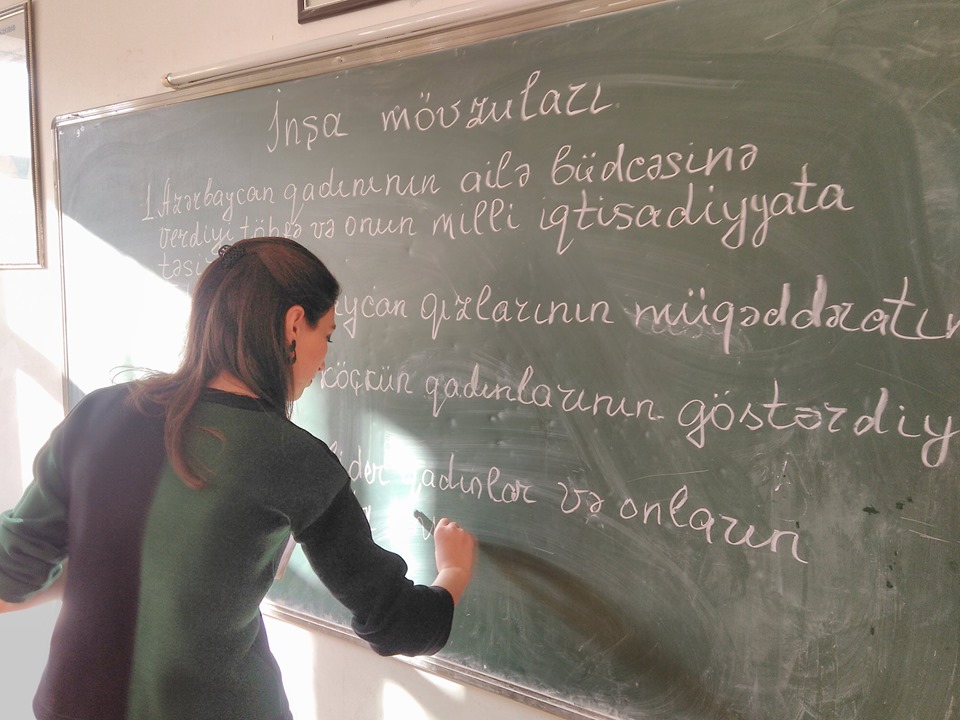 İnşa mövzuları
1. Azərbaycan qadınının ailə büdcəsinə
verdiyi töhfə və onun milli iqtisadiyyata
qızlarının müqəddəratın
köçkün qadınlarının göstərdiy
qadınlar və onların